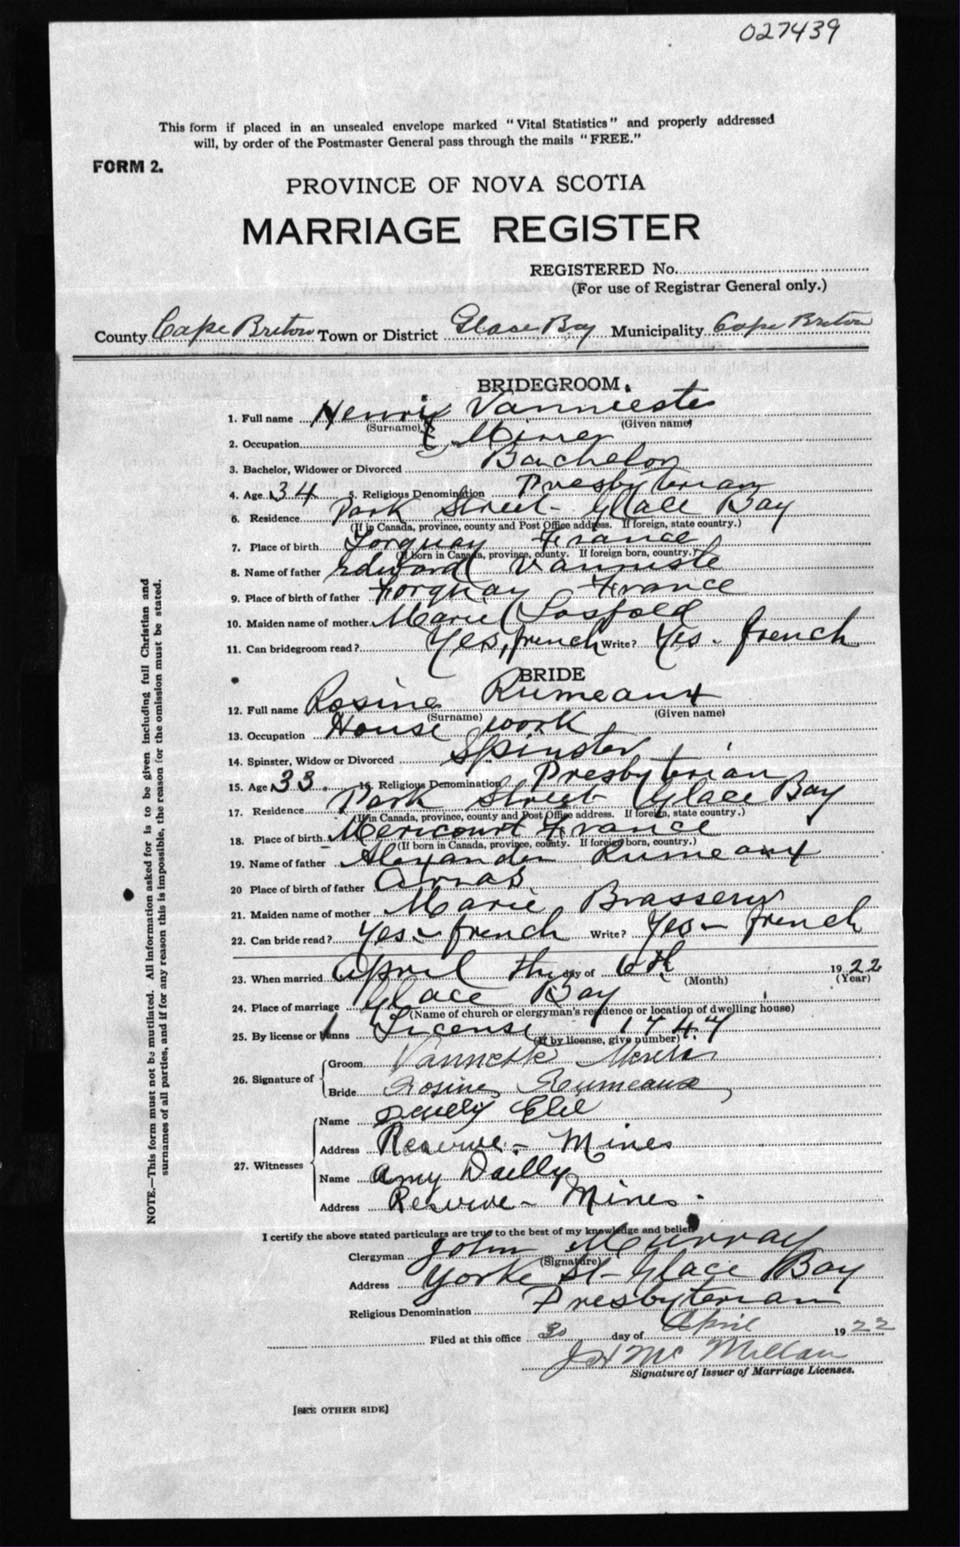 027439
This form if placed in an unsealed envelope marked "Vital Statistics" and properly addressed
will, by order of the Postmaster General pass through the mails "FREE."
FORM 2.
PROVINCE OF NOVA SCOTIA
MARRIAGE REGISTER
REGISTERED No.
(For use of Registrar General only.)
County Cape Breton Town or District Glace Bay Municipality Cape Breton
BRIDEGROOM.
1. Full name Henri Vanneste
(Surname) (Given name)
2. Occupation Miner
3. Bachelor, Widower or Divorced Bachelor
4. Age 34 5. Religious Denomination Presbyterian
6. Residence Park Street - Glace Bay
(If in Canada, province, county and Post Office address. If foreign, state country.)
7. Place of birth Torquay France
(If born in Canada, province, county. If foreign born, country.)
8. Name of father Edward Vanniste
9. Place of birth of father Torquay France
10. Maiden name of mother Marie
11. Can bridegroom read? Yes, french Write? Yes - french
BRIDE
12. Full name Rosine Rumeaux
(Surname) (Given name)
13. Occupation House work
14. Spinster, Widow or Divorced Spinster
15. Age 33. 16. Religious Denomination Presbyterian
17. Residence Park Street Glace Bay
(If in Canada, province, county and Post Office address. If foreign, state country.)
18. Place of birth Mericourt France
(If born in Canada, province, county. If foreign born, country.)
19. Name of father Alexander Rumeaux
20 Place of birth of father Arras
21. Maiden name of mother Marie Brassery
22. Can bride read? Yes - french Write? Yes - french
23. When married April the day of 6th 1922
(Month) (Year)
24. Place of marriage Glace Bay
(Name of church or clergyman's residence or location of dwelling house)
25. By license or banns License 1747
(If by license, give number)
26. Signature of
Groom Vanneste
Bride Rosine Rumeaux
27. Witnesses
Name Elie
Address Reserve - Mines
Name Amy Dailly
Address Reserve - Mines.
I certify the above stated particulars are true to the best of my knowledge and belief
Clergyman John Murray
(Signature)
Address Yorke St - Glace Bay
Religious Denomination Presbyterian
Filed at this office 30 day of April 1922
J H McMillan
Signature of Issuer of Marriage Licenses.
[SEE OTHER SIDE]
NOTE.—This form must not be mutilated. All information asked for is to be given including full Christian and
surnames of all parties, and if for any reason this is impossible, the reason for the omission must be stated.